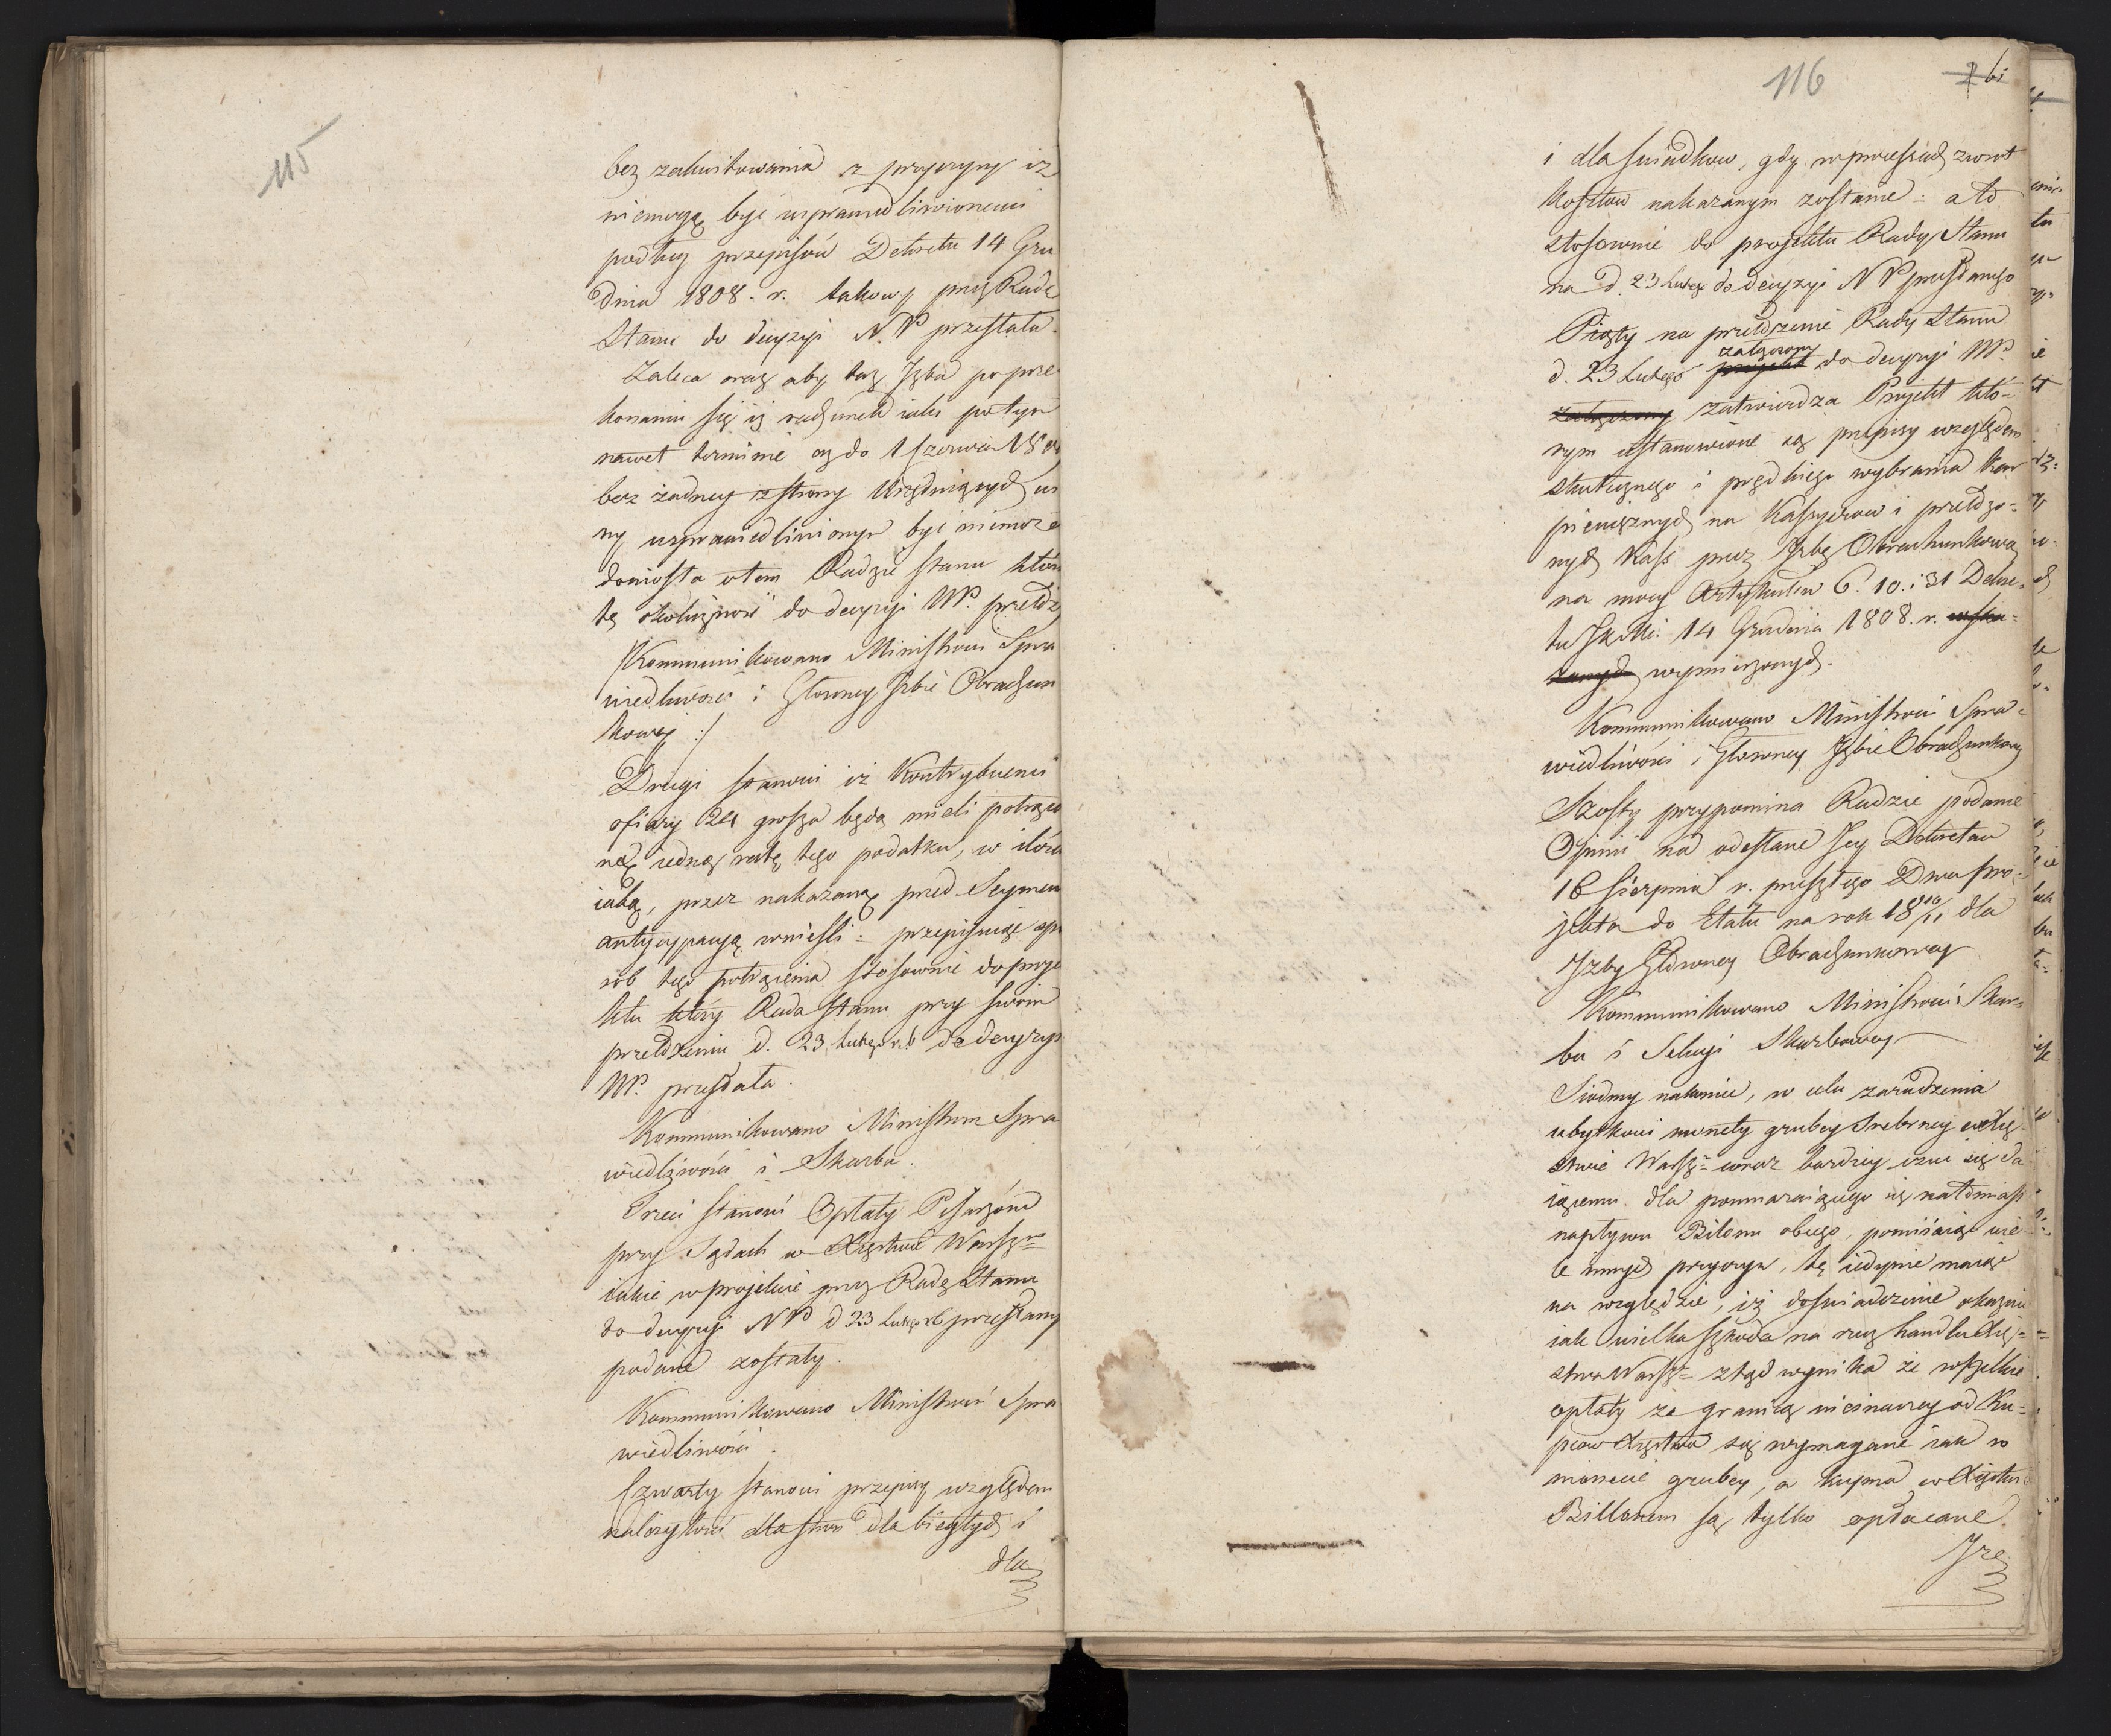 115
bez zakwitowania z przyczyny iż
niemogą być usprawiedliwionemi
podług przepisów Dekretu 14 Gru
dnia 1808. r. takowy przez Radę
Stanu do decyzyi N. P. przesłała.
Zaleca oraz aby taż Izba po prze
konaniu się iż rachunek iaki po tym
nawet terminie aż do 1 Czerwca 180
bez żadney z strony Urzędniczych wi
ny usprawiedliwionym być niemoże
doniosła o tem Radzie Stanu któr
tę okoliczność do decyzyi NP. przedło
/Kommunikowano Ministrowi Spra
wiedliwości i Główney Izbie Obrachun
kowej :/
Drugi stanowi iż Kontrybuenci
ofiary 24 grosza będą mieli potrąco
ną iedną ratę tego podatku, w ilości
iaką, przez nakazaną przed Seymem
antycypacyą wnieśli - przepisuiąc spo
sób tego potrącenia stosownie do proje
ktu który Rada Stanu przy swoim
przełożeniu d. 23 Lutego r. b. do decyzyi
NP. przesłała.
Kommunikowano Ministrom Spra
wiedliwości i Skarbu.
Trzeci stanowi Opłaty Pisarzom
przy Sądach w Xięstwie Warszm
iakie w projekcie przez Radę Stanu
do decyzyi NP d 23 Lutego rb przesłany
podane zostały.
Kommunikowano Ministrowi Spra
wiedliwości.
Czwarty stanowi przepisy względem
należytości dla stron dla biegłych i
dla
116
i dla świadków, gdy w processach zwrot
kosztów nakazanym zostanie - a to
stosownie do projektu Rady Stanu
na d. 23 Lutego do decyzyi NP przesłanego
Piąty na przełożenie Rady Stanu
załączony
d. 23 Lutego projekt do decyzyi NP.
załączony zatwierdza Projekt któ-
rym ustanowione są przepisy względem
skutecznego i prędkiego wybrania kar
pieniężnych na Kassyerow i przełożo-
nych Kass przez Izbę Obrachunkową
na mocy Artykułów 6. 10. i 31 Dekre-
tu 14 Grudnia 1808. r. wska-
zanych wymierzonych.
Kommunikowano Ministrowi Spra-
wiedliwości i Główney Izbie Obrachunkowey
Szosty przypomina Radzie podanie
Opinii na odesłane Jey Dekretem
16 Sierpnia r. przeszłego Dwa pro-
jekta do Etatu na rok 1810/11 dla
Izby Główney Obrachunkowey
Kommunikowano Ministrowi Skar-
bu i Sekcyi Skarbowey
Siodmy nakoniec, w celu zaradzenia
ubytkowi monety grubey srebrney w Xię-
stwie Warszm coraz bardziey czuć się da
iącemu dla pomnażaiącego się natomiast
napływu Bilonu obcego, pomiiaiąc wie
le innych przyczyn, tę iedynie maiąc
na względzie, iż doświadczenie okazuie
iak wielka szkoda na rzecz handlu Xię-
stwa Warszo ztąd wynika że wszelkie
opłaty za granicą nieinaczey od Ku-
pcow Xięstwa są wymagane iak w
monecie grubey, a kupna w Xięstwie
Billonem są tylko opłacane.
Jze